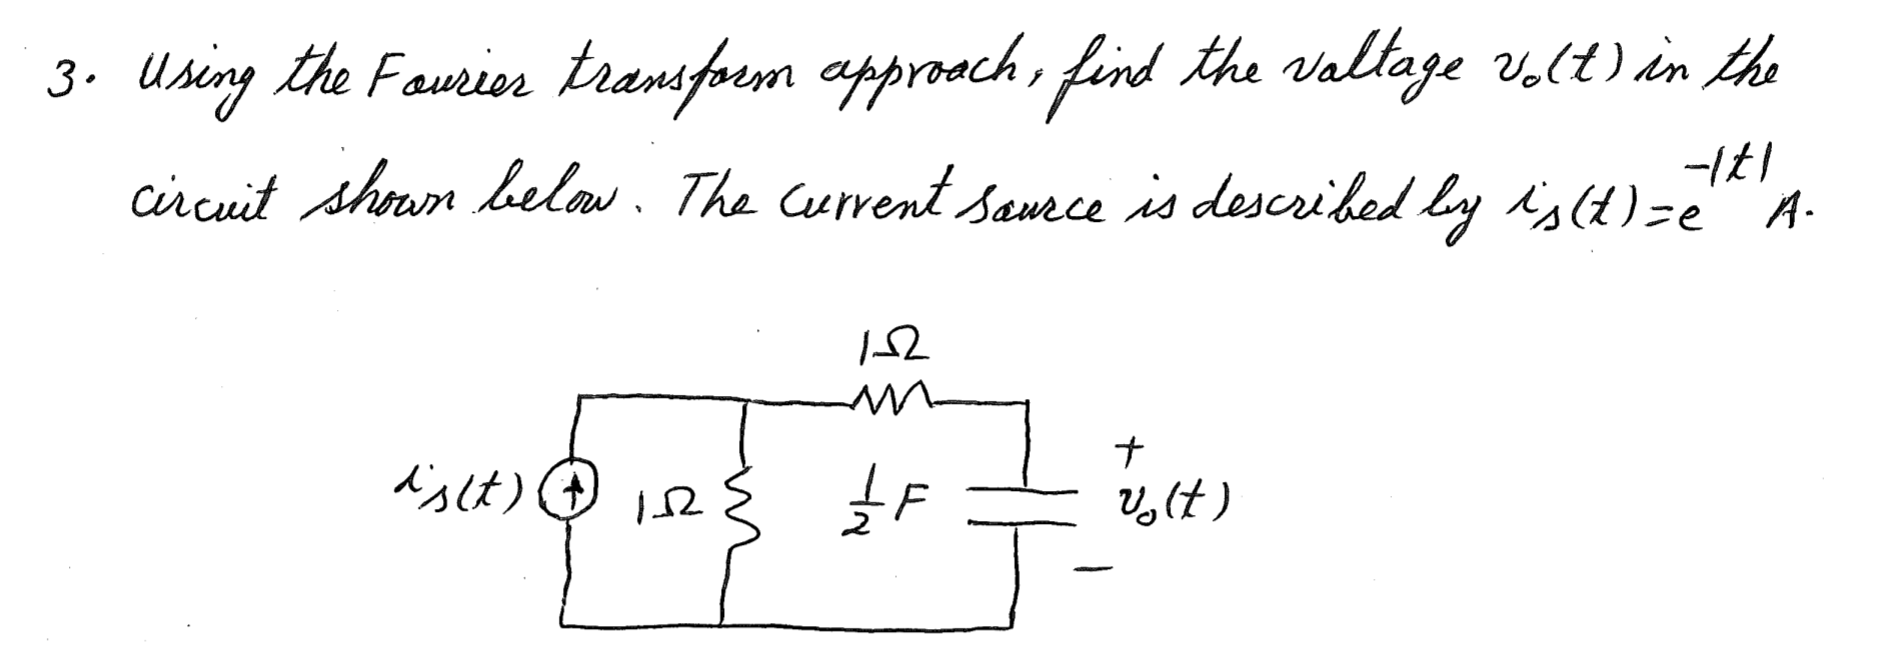 3. Using the Fourier transform approach, find the voltage v₀(t) in the
circuit shown below. The current source is described by iₛ(t)=e^-|t| A.
1Ω
+
iₛ(t) 1Ω 1/2 F v₀(t)
−